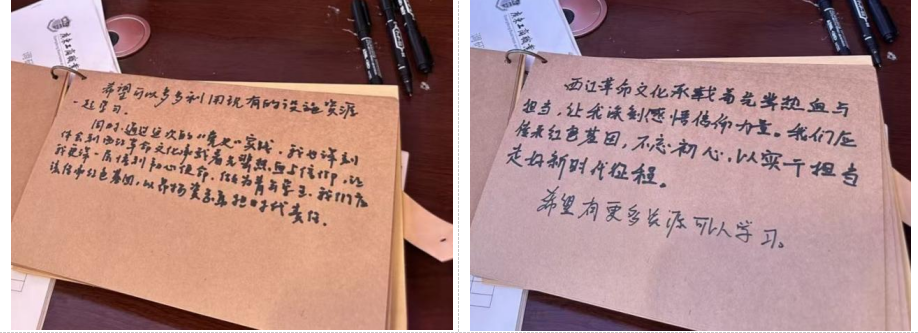 希望可以多多利用现有的设施资源
一起学习。
同时，通过这次的"三下乡"实践，我也深刻
体会到西江革命文化承载着先辈热血与信仰，让
我更深一层悟到初心使命。作为青年学生，我们应
该传承红色基因，以昂扬姿态勇担时代责任。
西江革命文化承载着先辈热血与
担当，让我深刻感悟信仰力量。我们应
传承红色基因，不忘初心，以实干担当
走好新时代征程。
希望有更多资源可以学习。